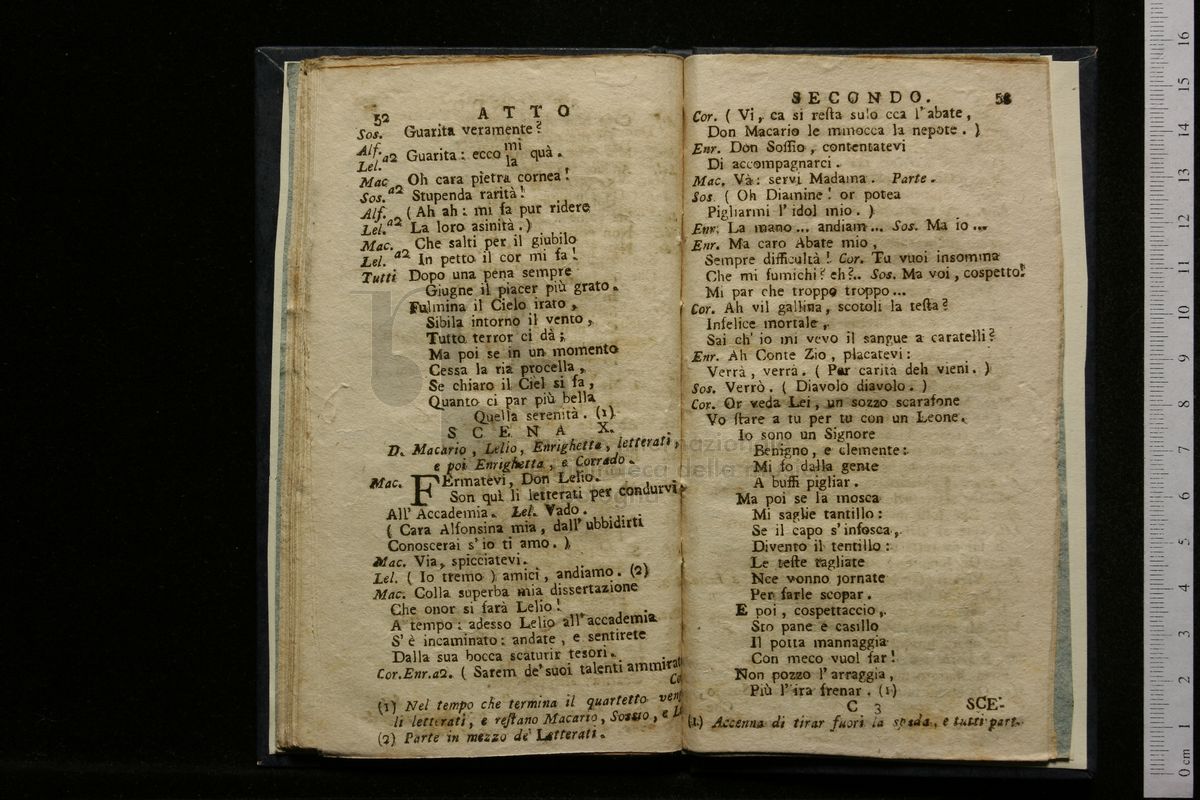 52 ATTO
Sos. Guarita veramente?
Alf. Lel. a2 Guarita: ecco mi la quà.
Mac. Oh cara pietra cornea!
Sos. a2 Stupenda rarità!
Alf. (Ah ah: mi fa pur ridere
Lel. a2 La loro asinità.)
Mac. Che salti per il giubilo
Lel. a2 In petto il cor mi fa!
Tutti Dopo una pena sempre
Giugne il piacer più grato.
Fulmina il Cielo irato,
Sibila intorno il vento,
Tutto terror ci dà;
Ma poi se in un momento
Cessa la ria procella,
Se chiaro il Ciel si fa,
Quanto ci par più bella
Quella serenità. (1)
SCENA X.
D. Macario, Lelio, Enrighetta, letterati,
e poi Enrighetta, e Corrado.
Mac. FErmatevi, Don Lelio.
Son quì li letterati per condurvi
All' Accademia. Lel. Vado.
(Cara Alfonsina mia, dall' ubbidirti
Conoscerai s' io ti amo.)
Mac. Via, spicciatevi.
Lel. (Io tremo) amici, andiamo. (2)
Mac. Colla superba mia dissertazione
Che onor si farà Lelio!
A tempo: adesso Lelio all' accademia
S' è incaminato: andate, e sentirete
Dalla sua bocca scaturir tesori.
Cor.Enr.a2. (Sarem de' suoi talenti ammirat
Co
(1) Nel tempo che termina il quartetto ven
li letterati, e restano Macario, Sossio, e L
(2) Parte in mezzo de' Letterati.
SECONDO. 53
Cor. (Vi, ca si resta sulo cca l' abate,
Don Macario le mmocca la nepote.)
Enr. Don Soffio, contentatevi
Di accompagnarci.
Mac. Và: servi Madama. Parte.
Sos. (Oh Diamine! or potea
Pigliarmi l' idol mio.)
Enr. La mano... andiam... Sos. Ma io...
Enr. Ma caro Abate mio,
Sempre difficultà! Cor. Tu vuoi insomma
Che mi fumichi? eh?.. Sos. Ma voi, cospetto!
Mi par che troppo troppo...
Cor. Ah vil gallina, scotoli la testa?
Infelice mortale,
Sai ch' io mi vevo il sangue a caratelli?
Enr. Ah Conte Zio, placatevi:
Verrà, verrà. (Per carità deh vieni.)
Sos. Verrò. (Diavolo diavolo.)
Cor. Or veda Lei, un sozzo scarafone
Vo stare a tu per tu con un Leone.
Io sono un Signore
Benigno, e clemente:
Mi fo dalla gente
A buffi pigliar.
Ma poi se la mosca
Mi saglie tantillo:
Se il capo s' infosca,
Divento il tentillo:
Le teste tagliate
Nce vonno jornate
Per farle scopar.
E poi, cospettaccio,
Sto pane e casillo
Il potta mannaggia
Con meco vuol far!
Non pozzo l' arraggia,
Più l' ira frenar. (1)
C 3 SCE-
(1.) Accenna di tirar fuori la spada, e tutti part.